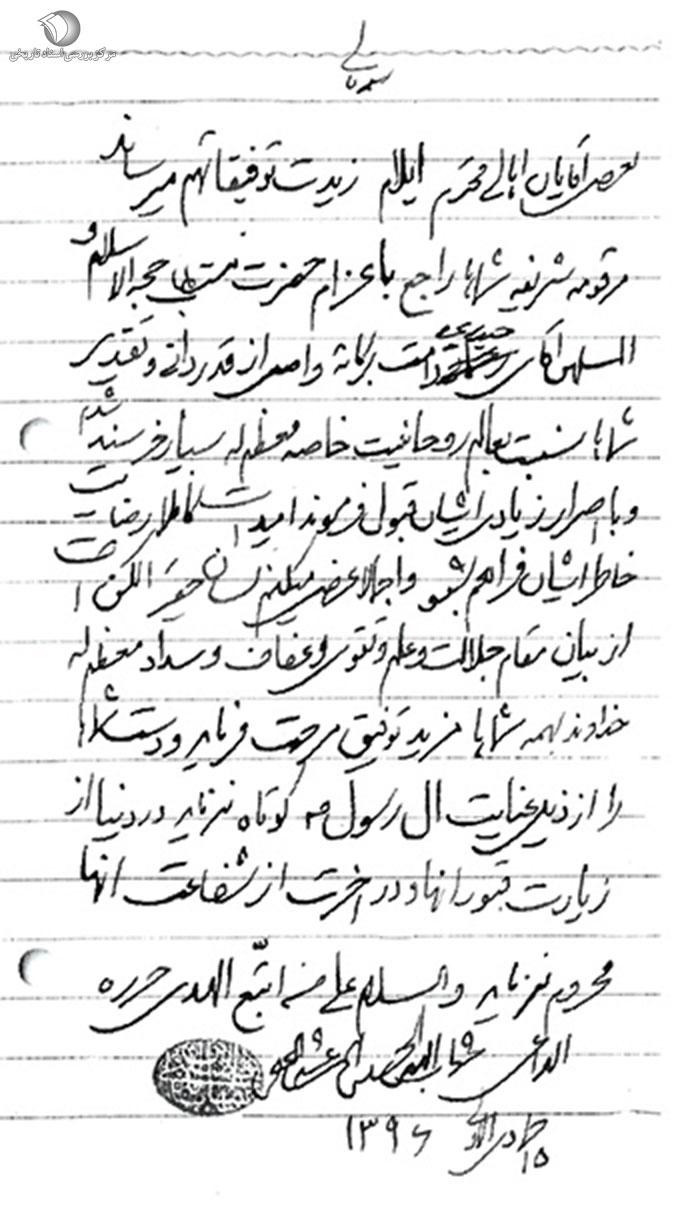 مرکز بررسی اسناد تاریخی
بعرض آقایان اهالی محترم ایلام زیدت توفیقاتهم میرساند
مرقومه شریفه شماها راجع باعزام حضرت مستطاب حجة الاسلام و
المسلمین آقای حیدری دامت برکاته واصل از قدردانی و تقدیر
شماها نسبت بعالم روحانیت خاصه معظم له بسیار خرسند شدم
و با اصرار زیادی ایشان قبول فرمودند امید است کاملا رضایت
خاطر ایشان فراهم بشود و اجمالا عرض میکنم لسان حقیر الکن است
از بیان مقام جلالت و علم و تقوی و عفاف و سداد معظم له
خداوند بهمه شماها مزید توفیق مرحمت فرماید و دست شماها
را از ذیل عنایت ال رسول ص کوتاه نفرماید در دنیا از
زیارت قبور انها و در اخرت از شفاعت انها
محروم نفرماید والسلام علی من اتّبع الهدی حرره
الداعی شهاب الدین الحسینی المرعشی النجفی
۱۵ جمادی الاولی ۱۳۹۶